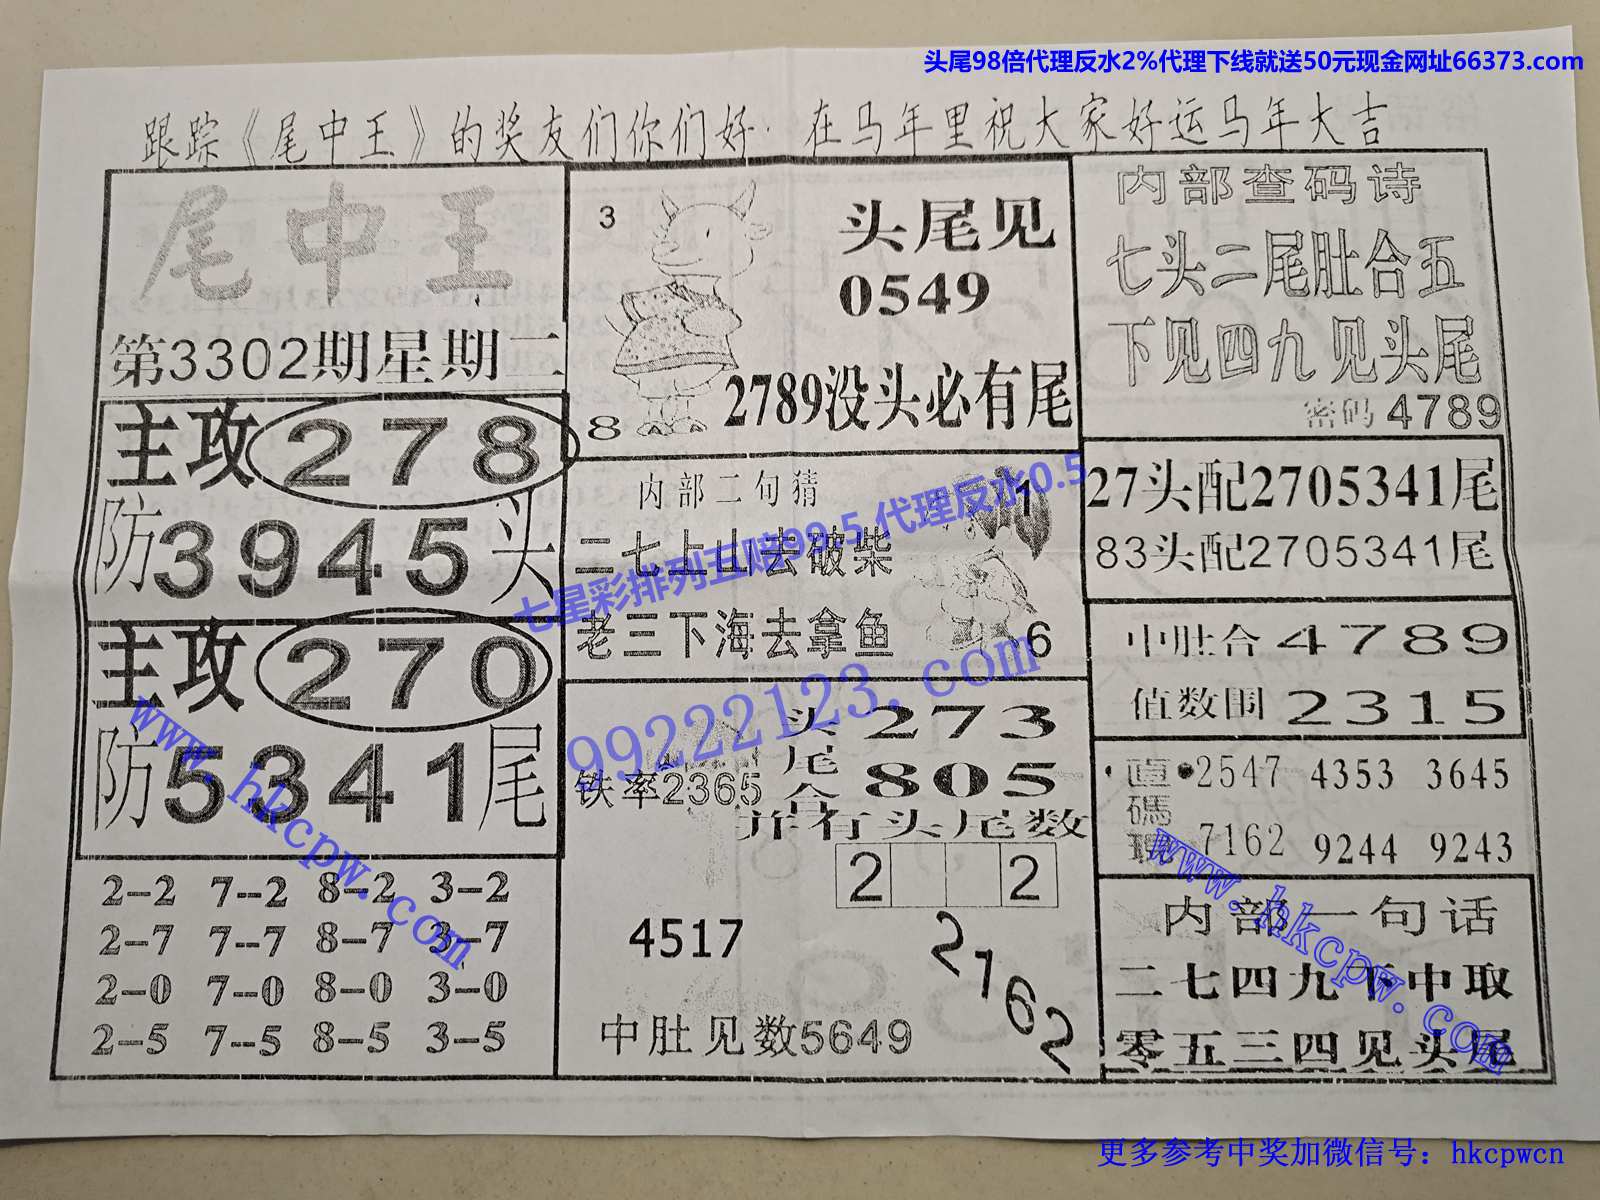 头尾98倍代理反水2%代理下线就送50元现金网址66373.com
跟踪《尾中王》的奖友们你们好·在马年里祝大家好运马年大吉
尾中王
第3302期星期二
主攻278
防3945头
主攻270
防5341尾
2--2 7--2 8--2 3--2
2--7 7--7 8--7 3--7
2--0 7--0 8--0 3--0
2--5 7--5 8--5 3--5
3
8
头尾见
0549
2789没头必有尾
内部二句猜
二七上山去破柴
老三下海去拿鱼
1
6
铁率2365
头273
尾805
合
并有头尾数
2 2
4517
2762
中肚见数5649
内部查码诗
七头二尾肚合五
下见四九见头尾
密码4789
27头配2705341尾
83头配2705341尾
中肚合4789
值数围2315
直碼 2547 4353 3645
7162 9244 9243
内部一句话
二七四九下中取
零五三四见头尾
七星彩排列五赔99.5代理反水0.5
99222123.com
www.hkcpw.com
www.hkcpw.com
更多参考中奖加微信号：hkcpwcn